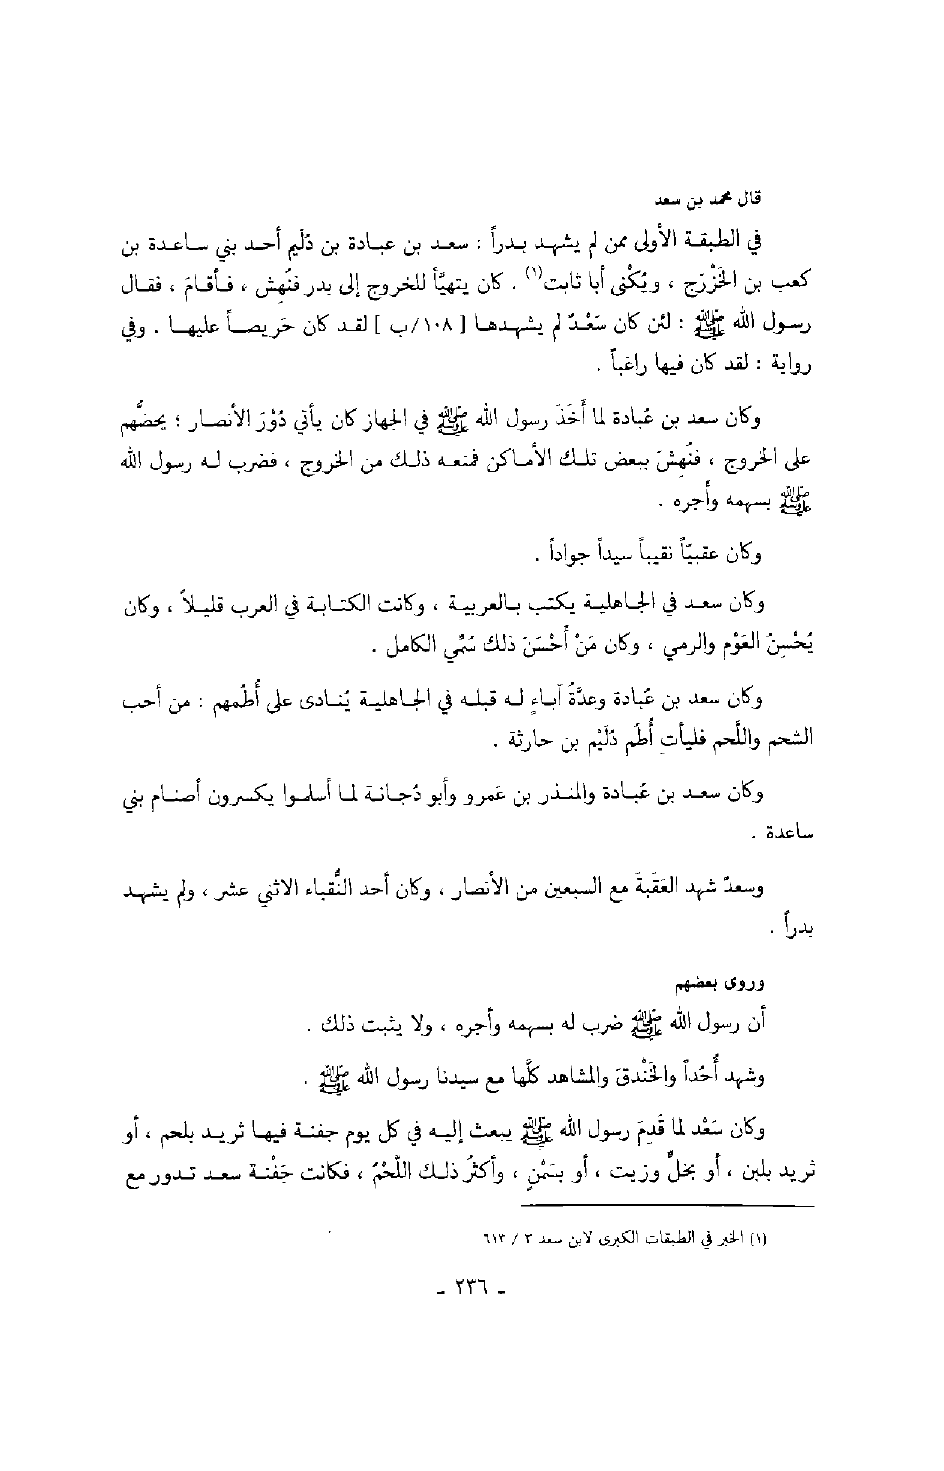 قال محمد بن سعد
في الطبقة الأولى ممن لم يشهد بدراً : سعد بن عبادة بن دُلَيم أحد بني ساعدة بن
كعب بن الخَزْرَج ، ويُكْنى أبا ثابت(١) . كان يتهيّأ للخروج إلى بدر فنُهِش ، فأقامَ ، فقال
رسول الله ﷺ : لئن كان سَعْدٌ لم يشهدها [ ١٠٨/ب ] لقد كان حَريصاً عليها . وفي
رواية : لقد كان فيها راغباً .
وكان سعد بن عُبادة لما أَخَذَ رسول الله ﷺ في الجهاز كان يأتي دُوْرَ الأنصار ؛ يحضُّهم
على الخروج ، فنُهِشَ ببعض تلك الأماكن فمنعه ذلك من الخروج ، فضرب له رسول الله
ﷺ بسهمه وأجره .
وكان عقبيّاً نقيباً سيداً جواداً .
وكان سعد في الجاهلية يكتب بالعربية ، وكانت الكتابة في العرب قليلاً ، وكان
يُحْسِنُ العَوْم والرمي ، وكان مَنْ أَحْسَنَ ذلك سُمِّي الكامل .
وكان سعد بن عُبادة وعدَّةُ آباءٍ له قبله في الجاهلية يُنادى على أُطُمهم : من أحب
الشحم واللَّحم فليأتِ أُطُم دُلَيْم بن حارثة .
وكان سعد بن عُبادة والمنذر بن عَمرو وأبو دُجانة لما أسلموا يكسرون أصنام بني
ساعدة .
وسعدٌ شهد العَقَبةَ مع السبعين من الأنصار ، وكان أحد النُّقباء الاثني عشر ، ولم يشهد
بدراً .
وروى بعضهم
أن رسول الله ﷺ ضرب له بسهمه وأجره ، ولا يثبت ذلك .
وشهد أُحُداً والخَنْدقَ والمشاهد كلَّها مع سيدنا رسول الله ﷺ .
وكان سَعْد لما قَدِمَ رسول الله ﷺ يبعث إليه في كل يوم جفنة فيها ثريد بلحم ، أو
ثريد بلبن ، أو بخلٍّ وزيت ، أو بسَمْنٍ ، وأكثرُ ذلك اللَّحْمُ ، فكانت جَفْنة سعد تدور مع
(١) الخبر في الطبقات الكبرى لابن سعد ٣ / ٦١٣
- ٢٣٦ -